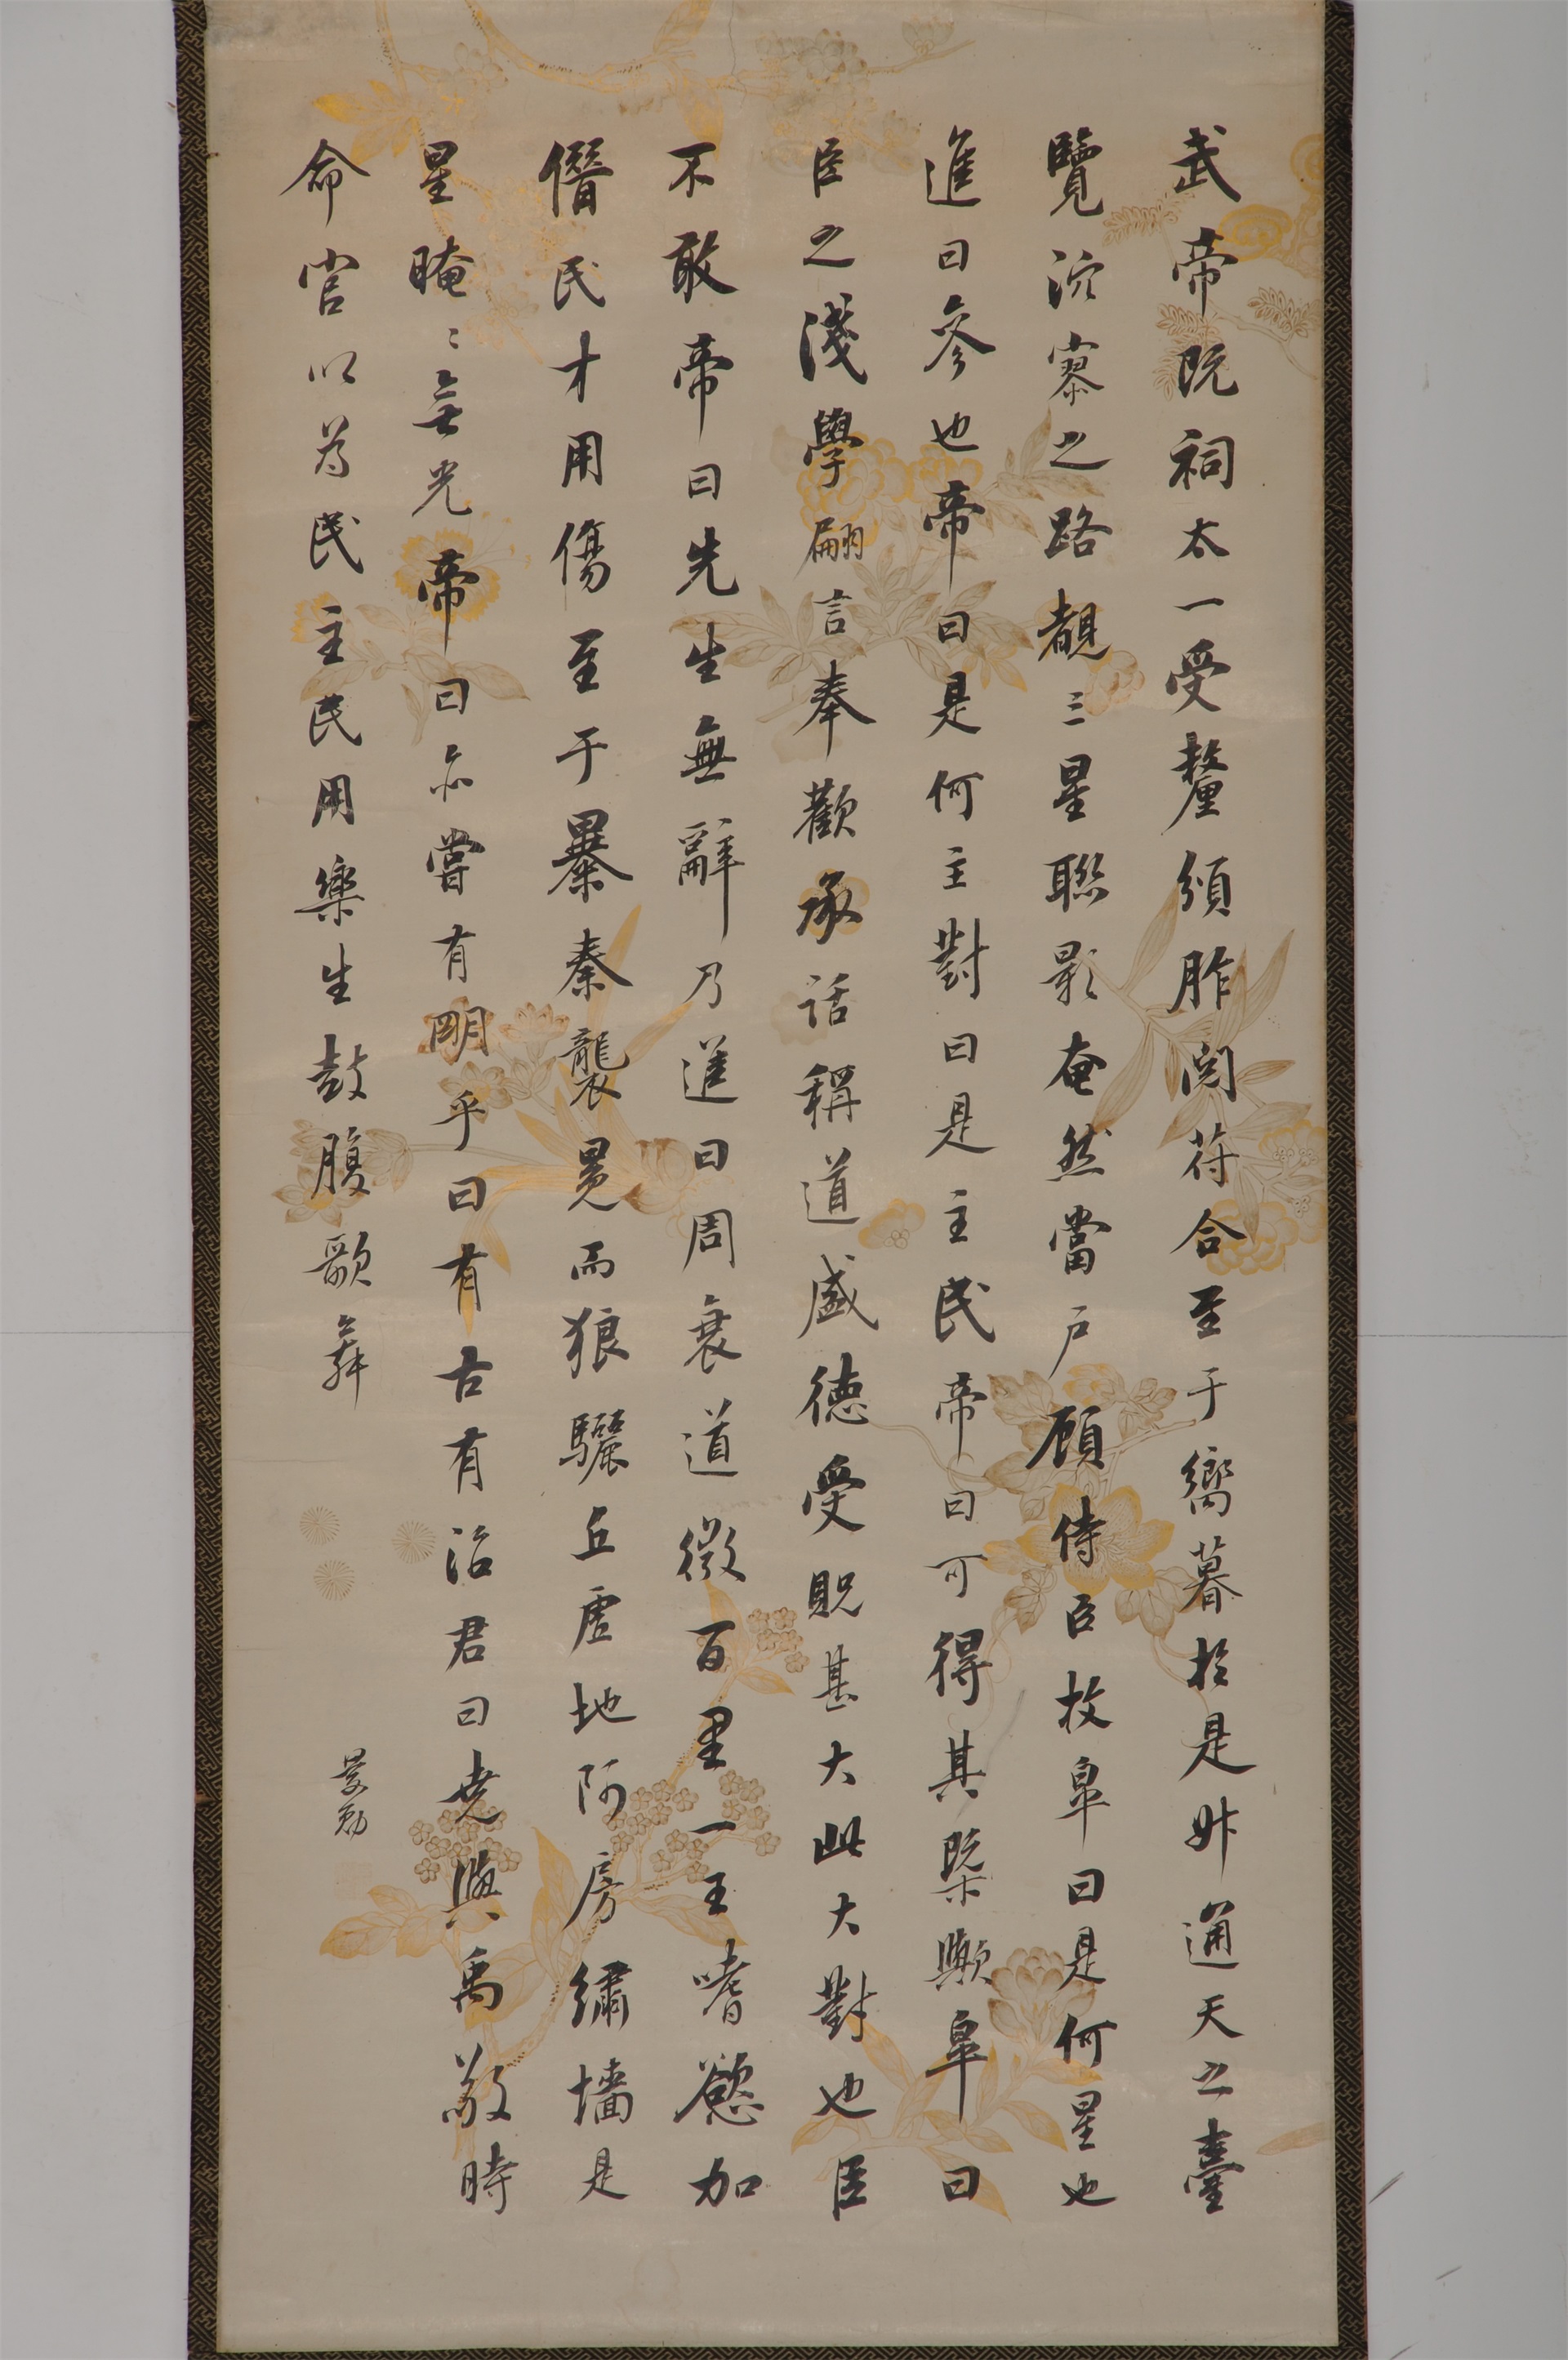 武帝既祠太一受釐頒胙閱符合至于嚮暮於是舛通天之臺
覽泬寥之路覩三星聯影奄然當戶顧侍臣枚臯曰是何星也
進曰參也帝曰是何主對曰是主民帝曰可得其槩歟臯曰
臣之淺學翩言奉歡承話稱道盛德受貺甚大此大對也臣
不敢帝曰先生無辭乃進曰周衰道微百里一王嗜慾加
僭民才用傷至于暴秦襲冕而狼驪丘虛地阿房繡墻是
星晻〻無光帝曰亦嘗有明乎曰有古有治君曰堯與禹敬時
命官以為民主民用樂生鼓腹歌舞